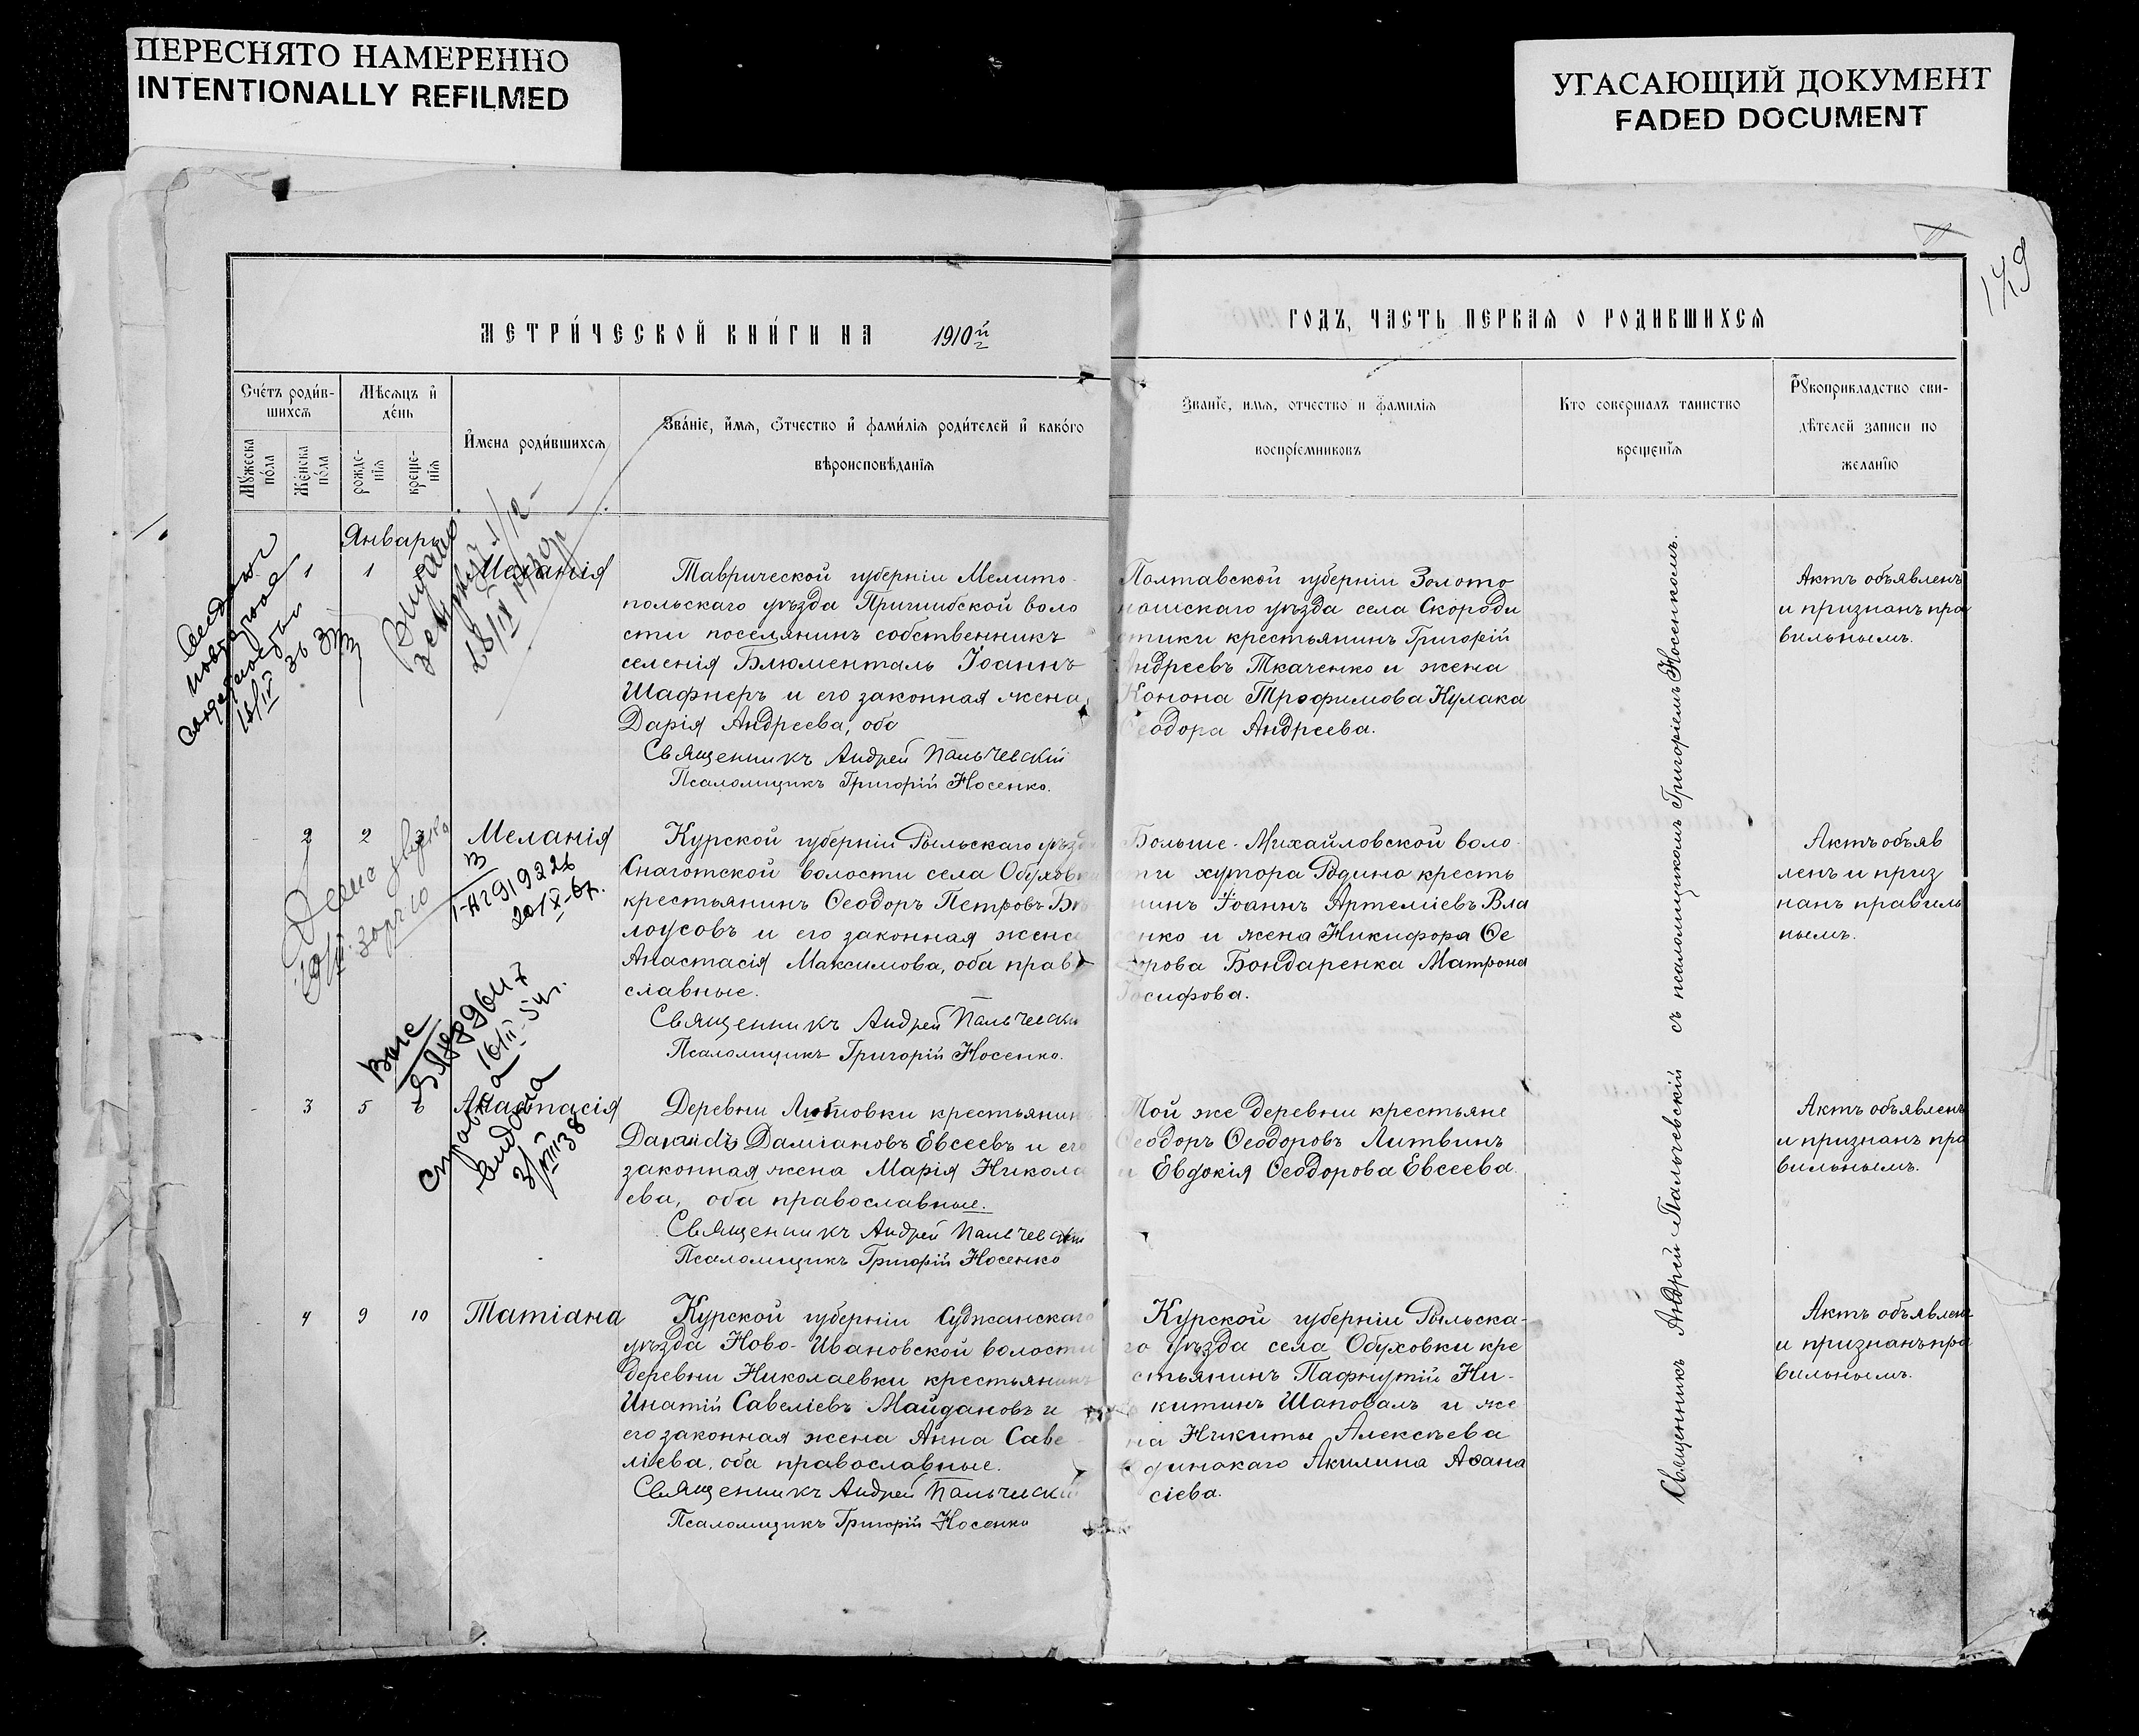 ПЕРЕСНЯТО НАМЕРЕННО
INTENTIONALLY REFILMED
УГАСАЮЩИЙ ДОКУМЕНТ
FADED DOCUMENT
149
МЕТРИ́ЧЕСКОЙ КНИ́ГИ НА 1910й г
ГОДЪ, ЧАСТЬ ПЕРВАѦ О РОДИВШИХСѦ
Сче́тъ роди́в-
шихсѧ
Мꙋжеска
по́ла
Же́нска
по́ла
Мѣсѧцъ и҆
де́нь
рожде-
нїѧ
креще-
нїѧ
И҆мена роди́вшихсѧ
Зва́нїе, и҆́мѧ, ѻ҆́тчество и҆ фами́лїѧ роди́телей и҆ како́гѡ
вѣроисповѣ́данїѧ
Званїе, имѧ, отчество и фамилїѧ
воспрїемниковъ
Кто совершалъ таинство
крещенїѧ
Рꙋкоприкладство сви-
дѣтелей записи по
желанїю
Январь
1 1
Меланія
Таврической губерніи Мелито-
польскаго уѣзда Пришибской воло
сти поселянинъ собственникъ
селенія Блюменталь Іоаннъ
Шафнеръ и его законная жена
Дарія Андреева, оба
Священникъ Андрей Пальчевскій
Псаломщикъ Григорій Носенко.
Полтавской губерніи Золото
ношскаго уѣзда села Скороди
стики крестьянинъ Григорій
Андреевъ Ткаченко и жена
Конона Трофимова Кулака
Ѳеодора Андреева.
Актъ объявленъ
и признанъ пра
вильнымъ.
2 2
Меланія
Курской губерніи Рыльскаго уѣзда
Снаготской волости села Обуховки
крестьянинъ Ѳеодоръ Петровъ Бѣ
лоусовъ и его законная жена
Анастасія Максимова, оба право
славные.
Священникъ Андрей Пальчевскій
Псаломщикъ Григорій Носенко.
Больше-Михайловской воло
сти хутора Родино кресть
нинъ Іоаннъ Артеміевъ Вла
сенко и жена Никифора Ѳе
дорова Бондаренка Матрона
Іосифова.
Актъ объяв
ленъ и приз
нанъ правиль
нымъ.
3 5 6
Анастасія
Деревни Любовки крестьянинъ
Давидъ Даміановъ Евсеевъ и его
законная жена Марія Никола
ева, оба православные.
Священникъ Андрей Пальчевскій
Псаломщикъ Григорій Носенко
Той же деревни крестьяне
Ѳеодоръ Ѳеодоровъ Литвинъ
и Евдокія Ѳеодорова Евсеева.
Актъ объявленъ
и признанъ пра
вильнымъ.
4 9 10
Татіана
Курской губерніи Суджанскаго
уѣзда Ново-Ивановской волости
деревни Николаевки крестьянинъ
Игнатій Савеліевъ Майдановъ и
его законная жена Анна Саве
ліева, оба православные.
Священникъ Андрей Пальчевскій
Псаломщикъ Григорій Носенко
Курской губерніи Рыльска-
го уѣзда села Обуховки кре
стьянинъ Пафнутій Ни-
китинъ Шаповалъ и же
на Никиты Алексѣева
Одинокаго Акилина Аѳана
сіева.
Актъ объявленъ
и признанъ пра
вильнымъ.
Священникъ Андрей Пальчевскій съ псаломщикомъ Григоріемъ Носенкомъ.
Справка
выдана
3/VIII 38